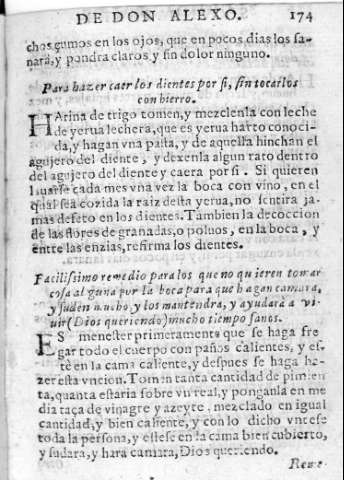 DE DON ALEXO. 174
chos gumos en los ojos, que en pocos dias los sa-
narà, y pondra claros y sin dolor ninguno.
Para hazer caer los dientes por si, sin tocarlos
con hierro.
HArina de trigo tomen, y mezclenla con leche
de yerua lechera, que es yerua harto conoci-
da, y hagan vna pasta, y de aquella hinchan el
agujero del diente, y dexenla algun rato dentro
del agujero del diente y caera por si. Si quieren
lauarse cada mes vna vez la boca con vino, en el
qual sea cozida la raiz desta yerua, no sentira ja-
mas defeto en los dientes. Tambien la decoccion
de las flores de granadas, o poluos, en la boca, y
entre las enzias, refirma los dientes.
Facilissimo remedio para los que no quieren tomar
cosa alguna por la boca para que hagan camara,
y suden mucho, y los mantendra, y ayudarà a vi-
uir (Dios queriendo) mucho tiempo sanos.
ES menester primeramente que se haga fre
gar todo el cuerpo con paños calientes, y es-
tè en la cama caliente, y despues se haga ha-
zer esta vncion. Tomen tanta cantidad de pimien
ta, quanta estaria sobre vn real, y ponganla en me
dia taça de vinagre y azeyte, mezclado en igual
cantidad, y bien caliente, y con lo dicho vntese
toda la persona, y estese en la cama bien cubierto,
y sudara, y hara camara, Dios queriendo.
Reme-